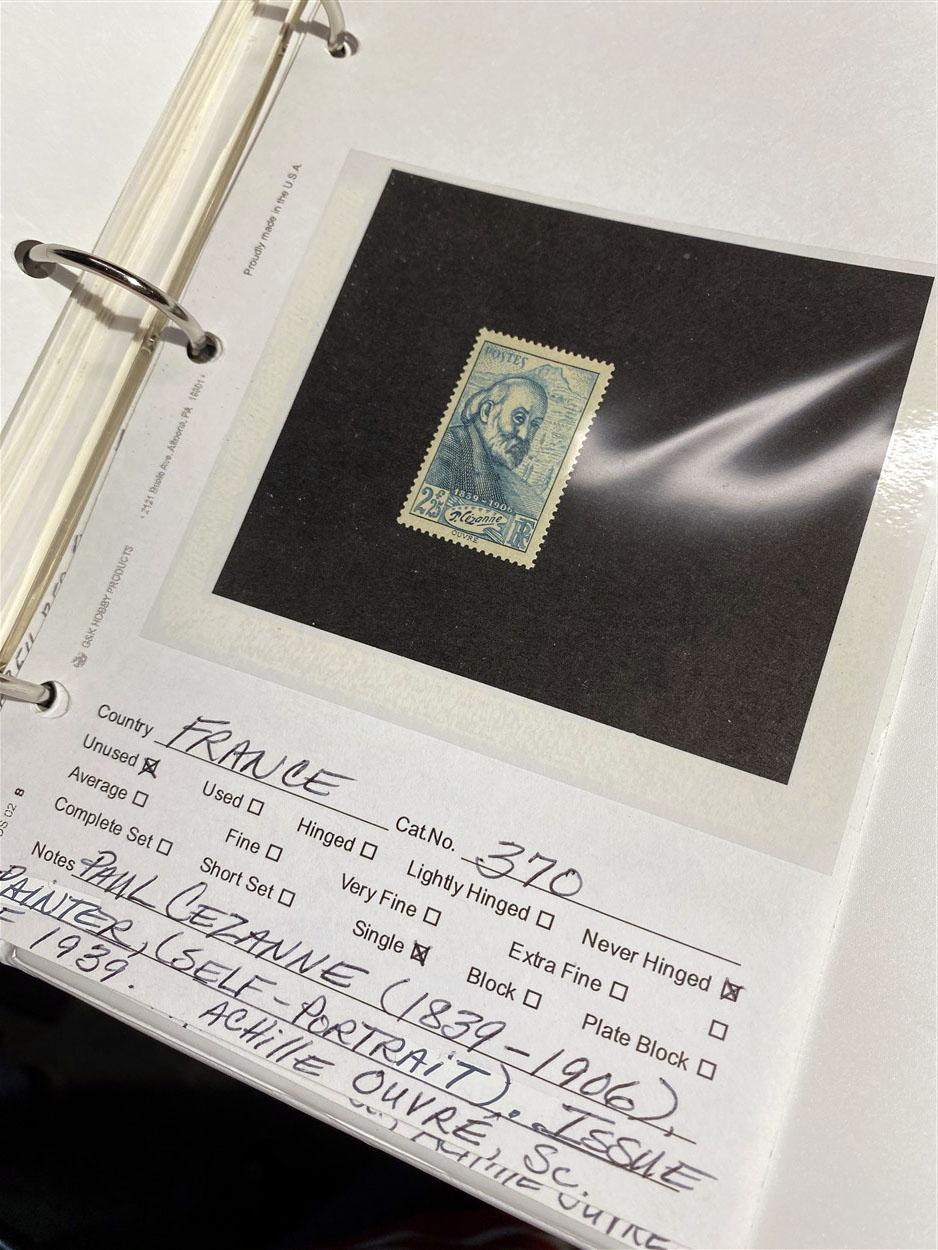 Proudly made in the U.S.A.
2121 Beale Ave. Altoona, PA 16601
G&K HOBBY PRODUCTS
POSTES
2F25
1839-1906
P. Cézanne
RF
OUVRÉ
Country FRANCE Cat.No. 370
Unused ☒ Used ☐ Hinged ☐ Lightly Hinged ☐ Never Hinged ☒
Average ☐ Fine ☐ Very Fine ☐ Extra Fine ☐ ☐
Complete Set ☐ Short Set ☐ Single ☒ Block ☐ Plate Block ☐
Notes PAUL CEZANNE (1839-1906),
PAINTER, (SELF-PORTRAIT). ISSUE
1939. ACHILLE OUVRÉ, SC.